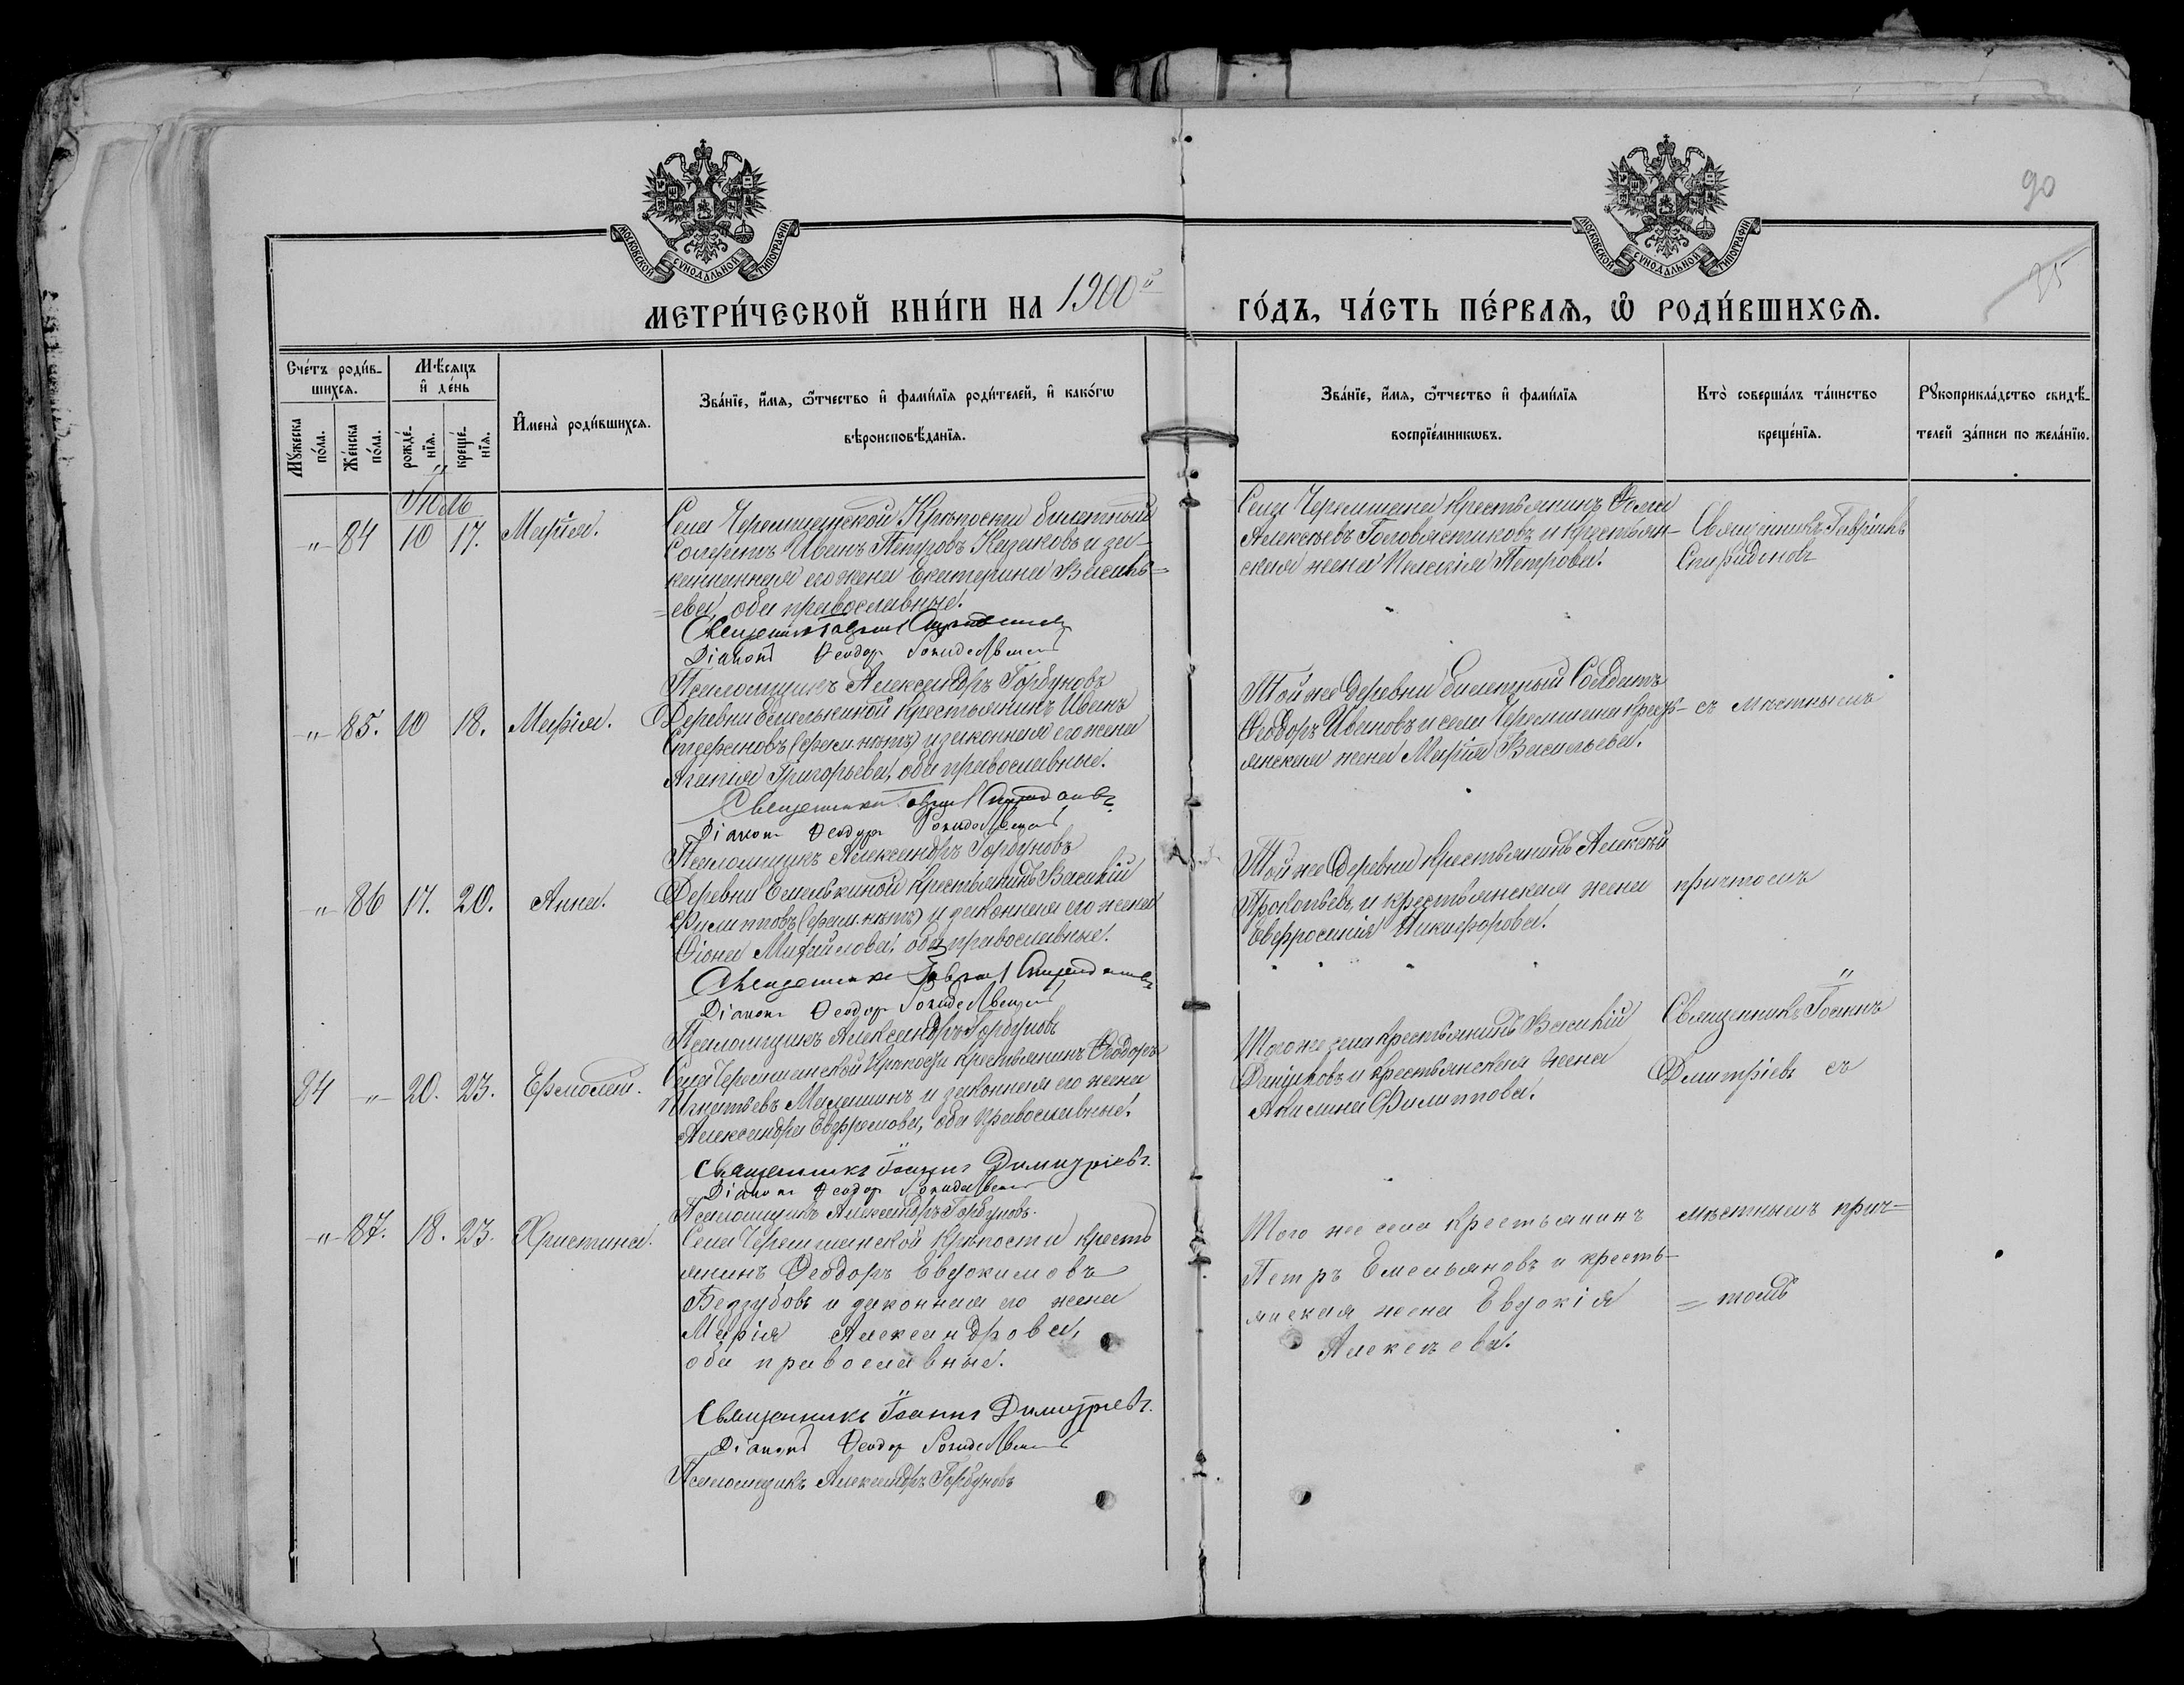 90
85
МОСКОВСКОЙ СѴНОДАЛЬНОЙ ТИПОГРАФІИ
МОСКОВСКОЙ СѴНОДАЛЬНОЙ ТИПОГРАФІИ
МЕТРИ́ЧЕСКОЙ КНИ́ГИ НА 1900й ГО́ДЪ, ЧА́СТЬ ПЕ́РВАѦ, Ѡ РОДИ́ВШИХСѦ.
Сче́тъ роди́в-
шихся.
Мꙋжеска по́ла.
Же́нска по́ла.
Мѣ́сяцъ и де́нь
рожде́-
нїя.
креще́-
нїя.
Имена̀ роди́вшихся.
Зва́нїе, и́мя, ѻ҆́тчество и фами́лїя роди́телей, и како́гѡ
вѣроисповѣ́данїя.
Зва́нїе, и́мя, ѻ҆́тчество и фами́лїя
воспрїе́мникѡвъ.
Кто̀ соверша́лъ та́инство
креще́нїя.
Рꙋкоприкла́дство свидѣ́-
телей за́писи по жела́нїю.
Іюль
„ 84 10 17. Марія.
Села Черемшанской Крѣпости билетный
Солдатъ Иванъ Петровъ Казаковъ и за-
конная его жена Екатерина Василь-
=ева, оба православные.
Священникъ Гавріилъ Спиридоновъ
Діаконъ Ѳеодоръ
Псаломщикъ Александръ Горбуновъ
Села Черемшана крестьянинъ Ѳома
Алексѣевъ Головастиковъ и крестьян-
ская жена Пелагія Петрова.
Священникъ Гавріилъ
Спиридоновъ
„ 85. 10 18. Марія.
Деревни Емелькиной крестьянинъ Иванъ
Стефановъ (фам. нѣтъ) и законная его жена
Агапія Григорьева, оба православные.
Священникъ Гавріилъ Спиридоновъ
Діаконъ Ѳеодоръ
Псаломщикъ Александръ Горбуновъ
Той же деревни билетный Солдатъ
Ѳеодоръ Ивановъ и села Черемшана крест-
янская жена Марія Васильева.
съ мѣстнымъ
„ 86 17. 20. Анна.
Деревни Емелькиной крестьянинъ Василій
Филипповъ (фам. нѣтъ) и законная его жена
Ѳіона Михайлова, оба православные.
Священникъ Гавріилъ Спиридоновъ
Діаконъ Ѳеодоръ
Псаломщикъ Александръ Горбуновъ
Той же деревни крестьянинъ Алексѣй
Прокопьевъ, и крестьянская жена
Евфросинія Никифорова.
причтомъ
84 „ 20. 23. Ермолай.
Села Черемшанской Крѣпости крестьянинъ Ѳеодоръ
Игнатьевъ Малашинъ и законная его жена
Александра Евфремова, оба православные.
Священникъ Іоаннъ Димитріевъ.
Діаконъ Ѳеодоръ
Псаломщикъ Александръ Горбуновъ.
Того же села крестьянинъ Василій
Даниловъ и крестьянская жена
Акилина Филиппова.
Священникъ Іоаннъ
Димитріевъ съ
„ 87. 18. 23. Христина.
Села Черемшанской Крѣпости кресть
янинъ Ѳеодоръ Евдокимовъ
Беззубовъ и законная его жена
Марія Александрова,
оба православные.
Священникъ Іоаннъ Димитріевъ.
Діаконъ Ѳеодоръ
Псаломщикъ Александръ Горбуновъ
Того же села крестьянинъ
Петръ Емельяновъ и кресть-
янская жена Евдокія
Алексѣева.
мѣстнымъ прич=
=томъ